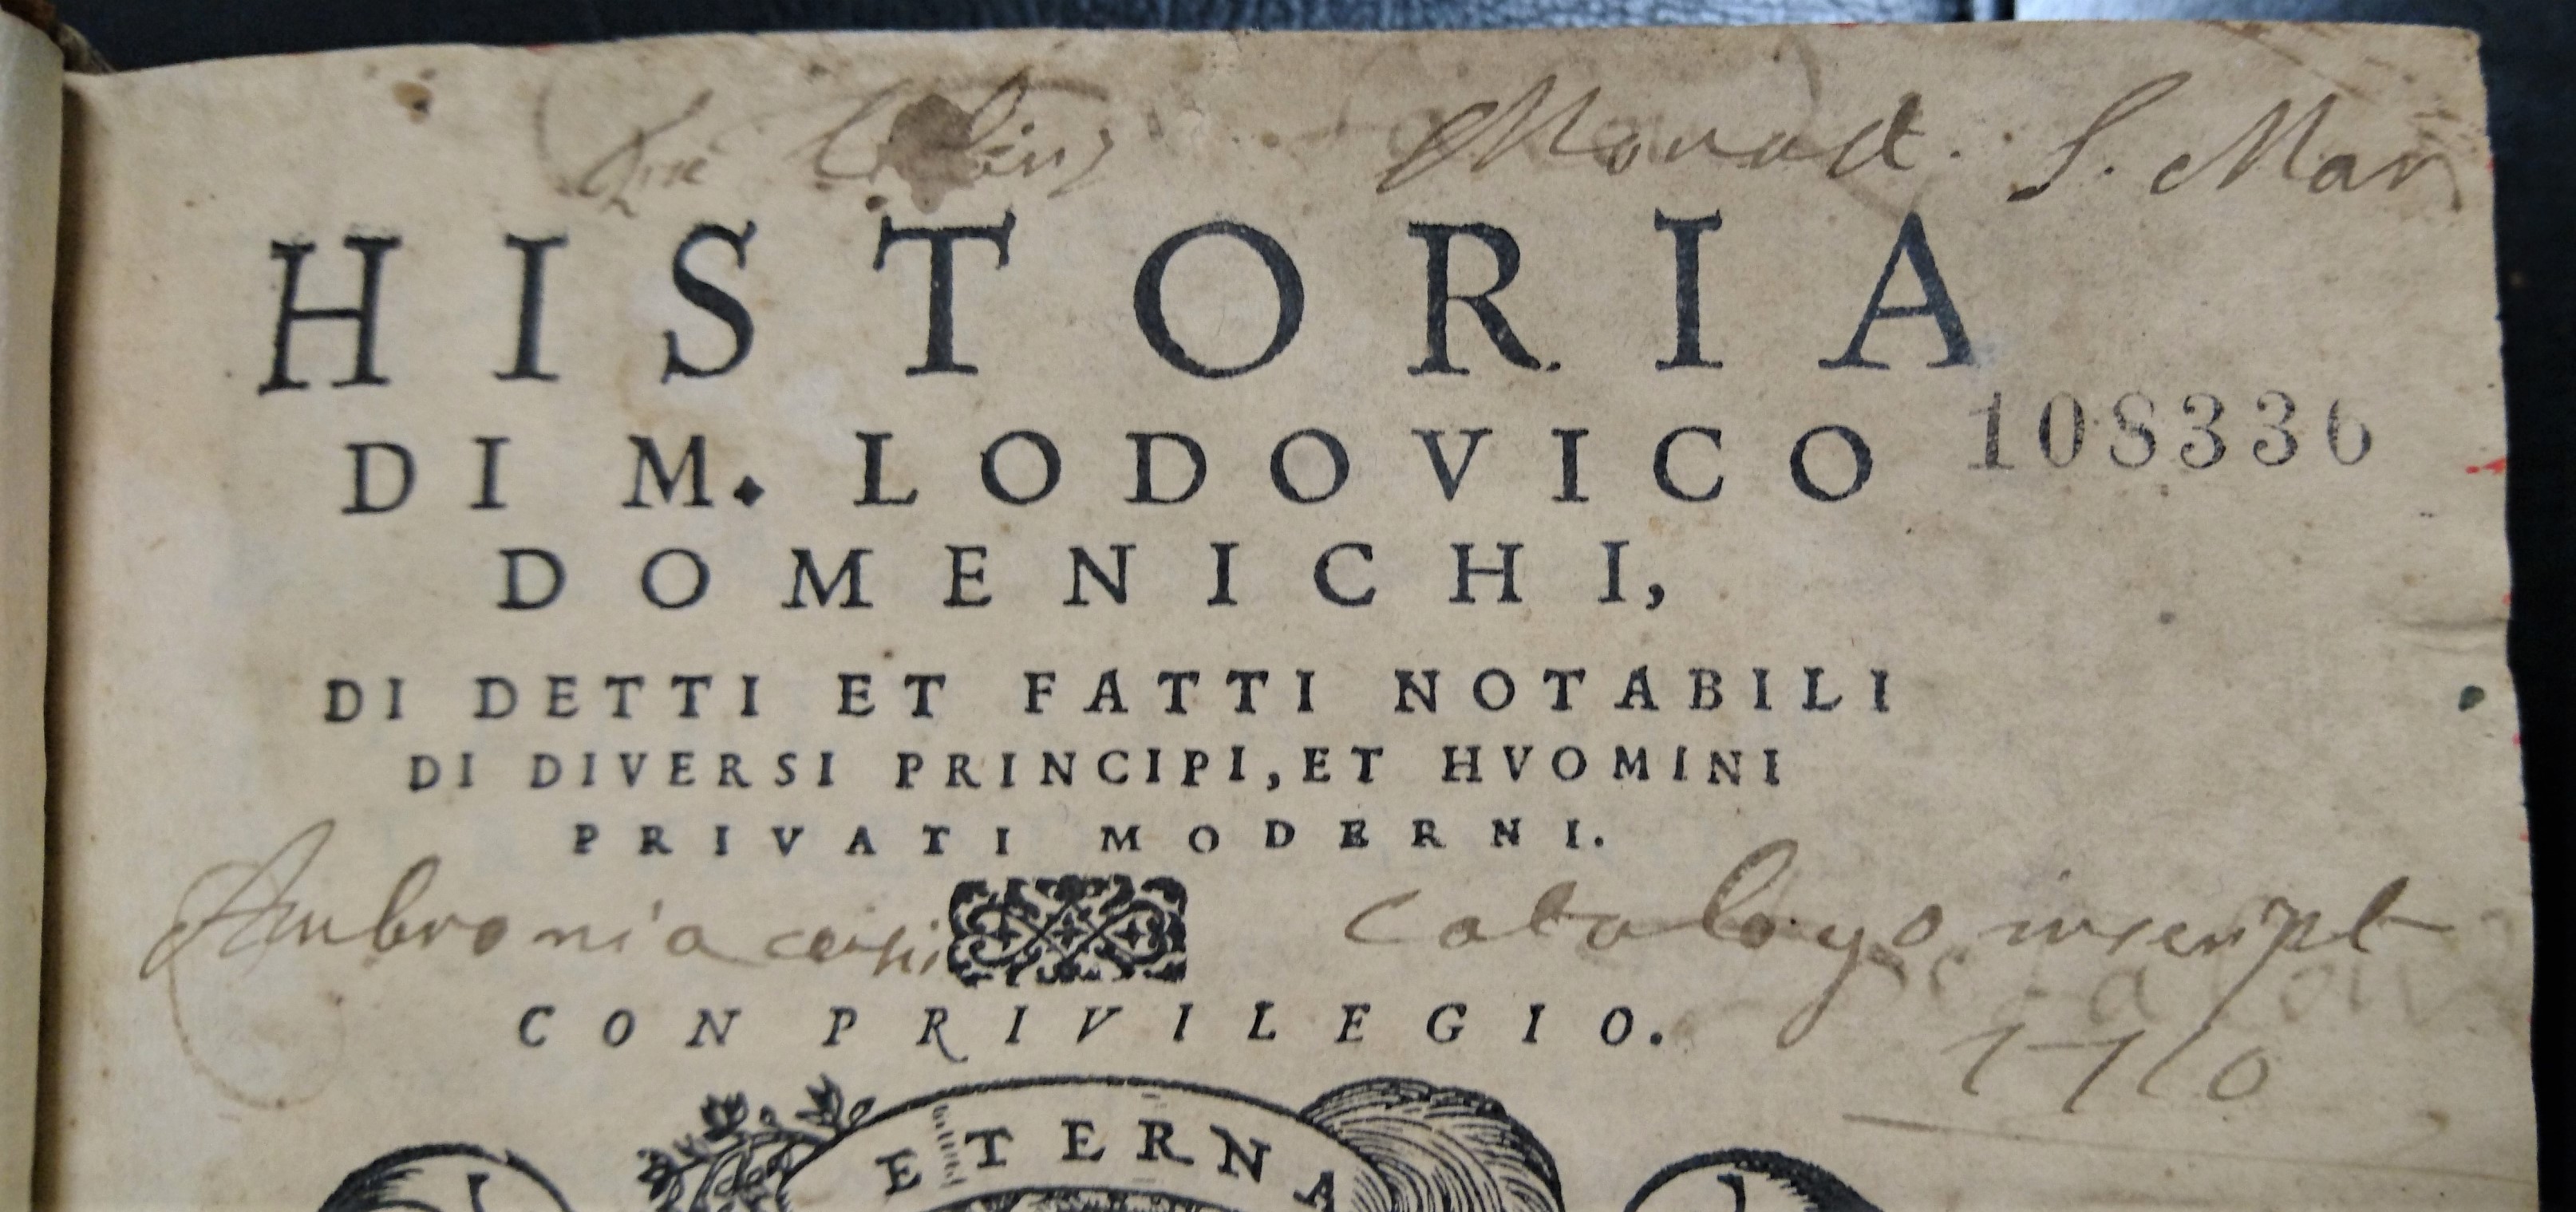 Monast. S. Mar
HISTORIA
108336
DI M. LODOVICO
DOMENICHI,
DI DETTI ET FATTI NOTABILI
DI DIVERSI PRINCIPI, ET HVOMINI
PRIVATI MODERNI.
Ambroniacensi Catalogo inscript
1710
CON PRIVILEGIO.
ETERNA